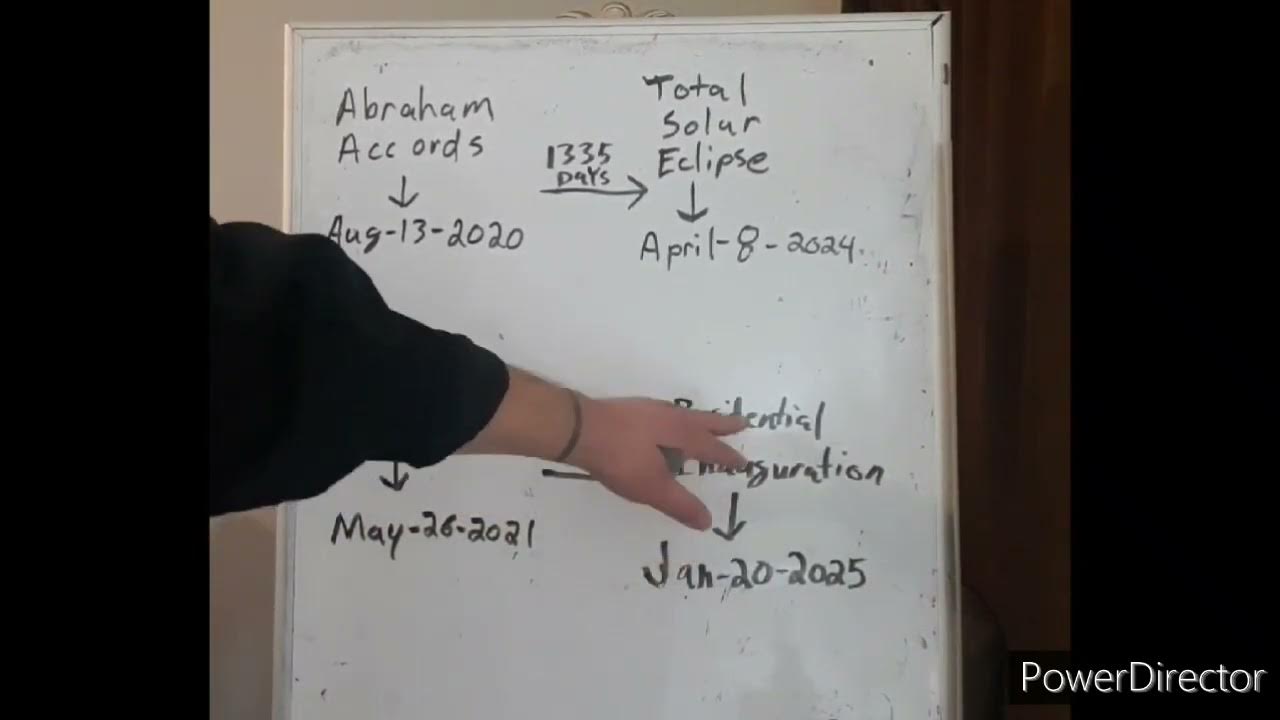 Abraham
Accords
Aug-13-2020
1335
Days
Total
Solar
Eclipse
April-8-2024
May-26-2021
Inauguration
Jan-20-2025
PowerDirector